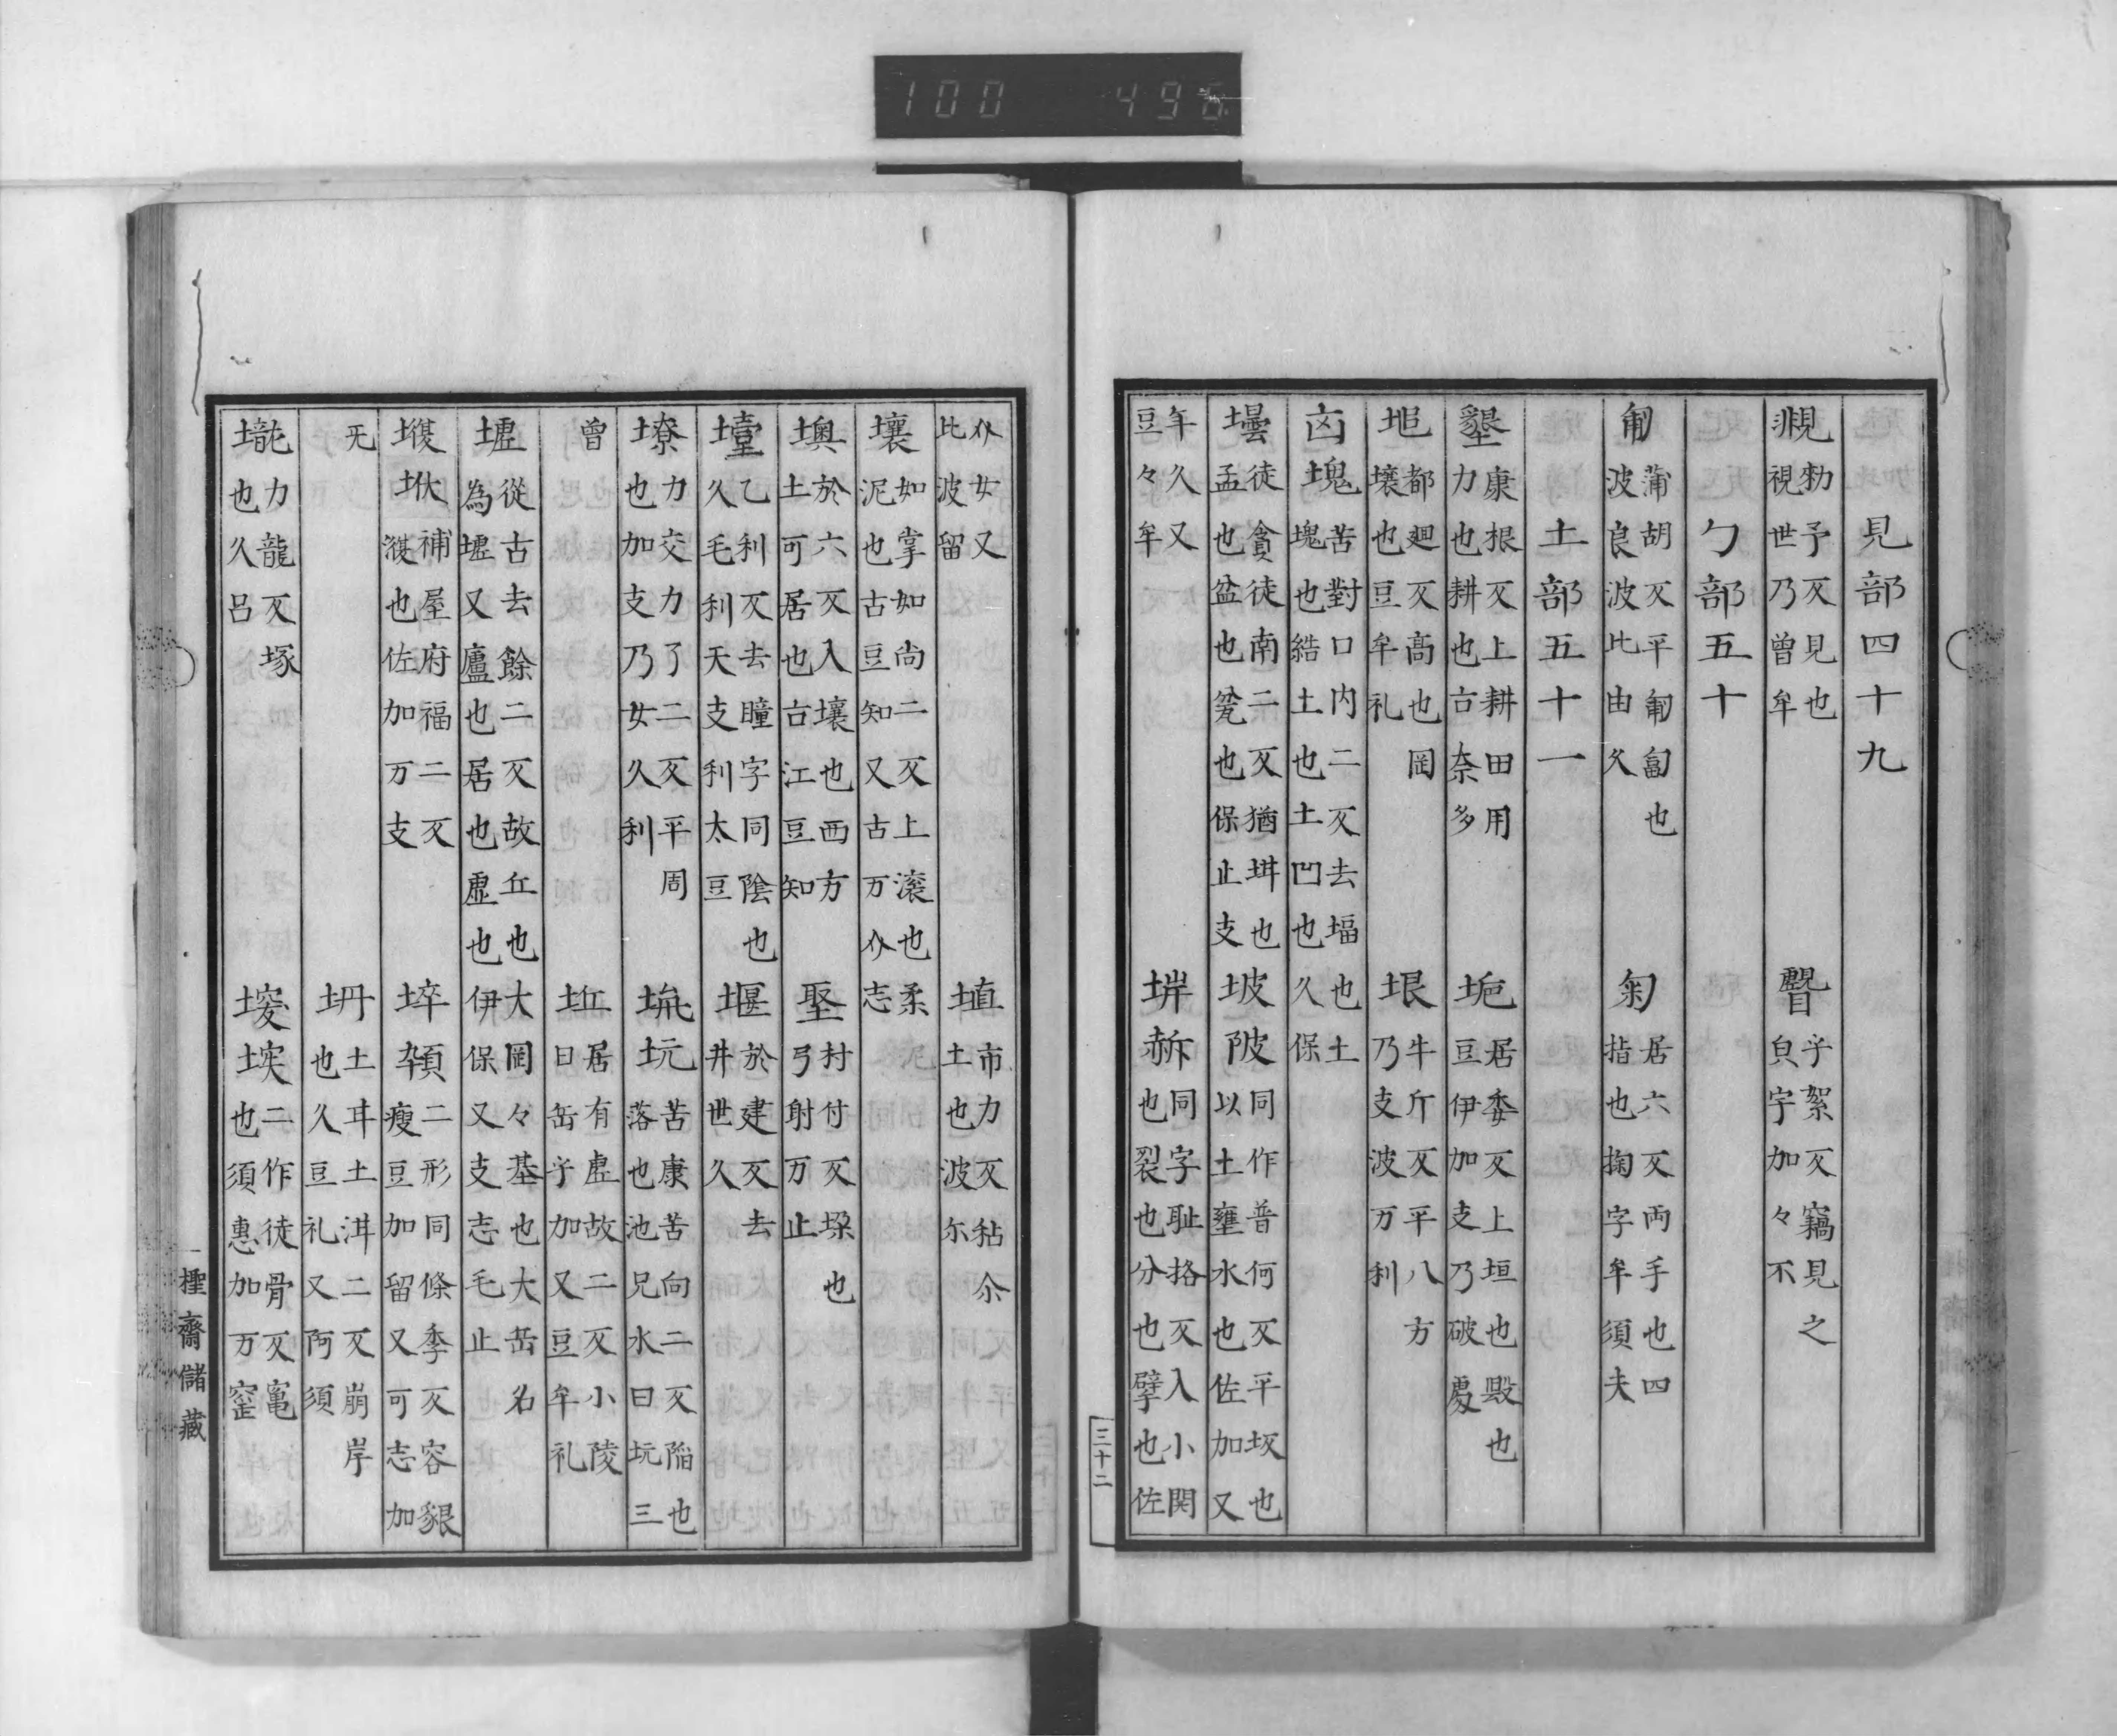 100 496
見部四十九
覒 勑予反見也視世乃曾牟
䁝 乎絮反竊見之貟字加々不
勹部五十
匍 蒲胡反平匍匐也波良波比由久
匊 居六反両手也四指也掬字牟須夫
土部五十一
墾 康根反上耕田用力也耕也古奈多
垝 居委反上垣也毀也豆伊加支乃破㞐
𠂤 都廻反高也罡壤也豆牟礼
垠 牛斤反平八方乃支波万利
凷塊 苦對口内二反去堛也土塊也結土也土凹也久保
壜 徒貪徒南二反猶坩也孟也盆也㼜也保止支
坡陂 同作普何反平坂也以土壅水也佐加又
年久又豆々牟
垪赫 同字耻挌反入小開也裂也分也擘也佐
介女又比波留
埴 市力反粘尒土也波尓
壤 如掌如尚二反上滚也柔泥也古豆知又古万介志
墺 於六反入壤也西方土可居也古江豆知
堅 村付反垜也弓射万止
𡑞 乙利反去曀字同陰也久毛利天支利太豆
堰 於建反去井世久
墽 力交力了二反平周也加支乃女久利
𡊢坑 苦康苦向二反陥也落也池兄水曰坑三
曽
坵 居有虚故二反小陵曰岳乎加又豆牟礼
墟 從古去餘二反故丘也大罡々基也大岳名為墟又廬也居也虚也伊保又支志毛止
塸垘 補屋府福二反洑也佐加万支
埣顇 二形同條季反容貇瘦豆加留又可志加
无
坍 土丹土洱二反崩岸也久豆礼又阿須
壠 力龍反塚也久呂
堗埃 二作徒骨反竃也須恵加万窒
三十二
㮚齋儲藏